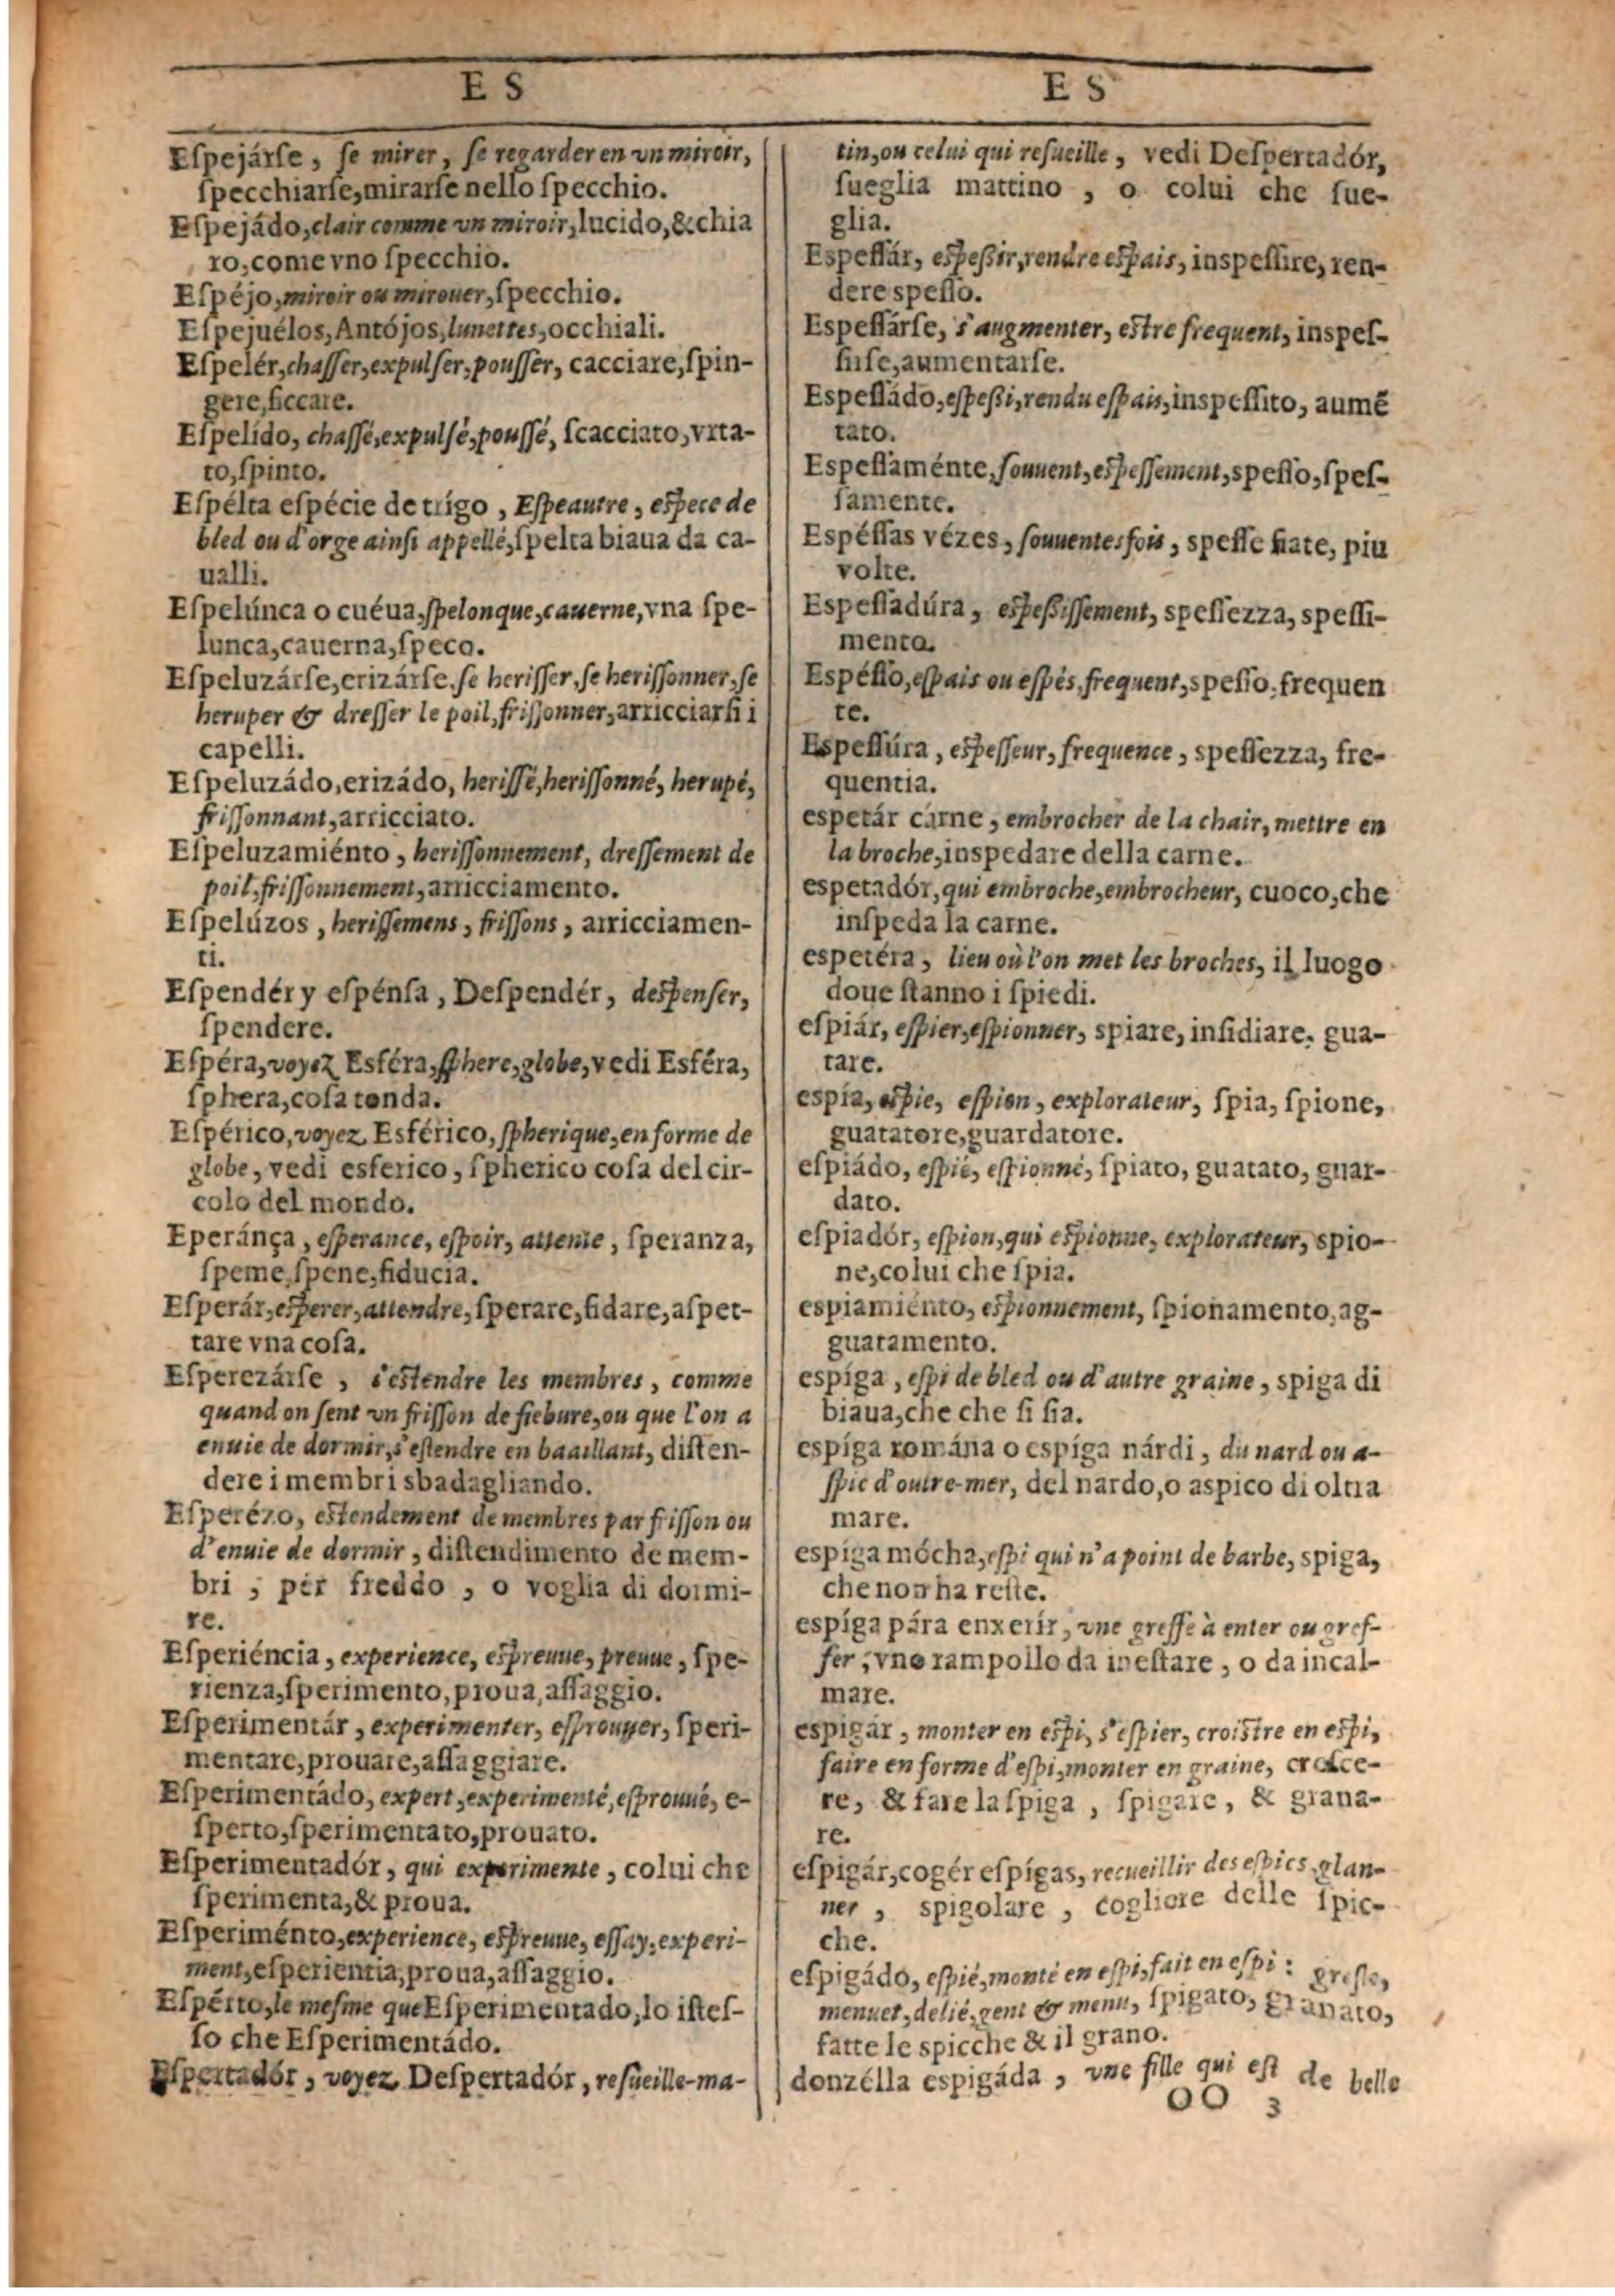 E S
Eſpejárſe, ſe mirer, ſe regarder en vn miroir,
ſpecchiarſe, mirarſe nello ſpecchio.
Eſpejádo, clair comme vn miroir, lucido, & chia
ro, come vno ſpecchio.
Eſpéjo, miroir ou mirouer, ſpecchio.
Eſpejuélos, Antójos, lunettes, occhiali.
Eſpelér, chaſſer, expulſer, pouſſer, cacciare, ſpin-
gere, ficcare.
Eſpelído, chaſſé, expulſé, pouſſé, ſcacciato, vrta-
to, ſpinto.
Eſpélta eſpécie de trígo, Eſpeautre, eſpece de
bled ou d'orge ainſi appellé, ſpelta biaua da ca-
ualli.
Eſpelúnca o cuéua, ſpelonque, cauerne, vna ſpe-
lunca, cauerna, ſpeco.
Eſpeluzárſe, erizárſe, ſe heriſſer, ſe heriſſonner, ſe
heruper & dreſſer le poil, friſſonner, arricciarſi i
capelli.
Eſpeluzádo, erizádo, heriſſé, heriſſonné, herupé,
friſſonnant, arricciato.
Eſpeluzamiénto, heriſſonnement, dreſſement de
poil, friſſonnement, arricciamento.
Eſpelúzos, heriſſemens, friſſons, arricciamen-
ti.
Eſpendér y eſpénſa, Deſpendér, deſpenſer,
ſpendere.
Eſpéra, voyez Esféra, ſphere, globe, vedi Esféra,
ſphera, coſa tonda.
Eſpérico, voyez Esférico, ſpherique, en forme de
globe, vedi esferico, ſpherico coſa del cir-
colo del mondo.
Eperánça, eſperance, eſpoir, attente, ſperanza,
ſpeme, ſpene, fiducia.
Eſperár, eſperer, attendre, ſperare, fidare, aſpet-
tare vna coſa.
Eſperezárſe, s'eſtendre les membres, comme
quand on ſent vn friſſon de fiebure, ou que l'on a
enuie de dormir, s'eſtendre en baaillant, diſten-
dere i membri sbadagliando.
Eſperézo, eſtendement de membres par friſſon ou
d'enuie de dormir, diſtendimento de mem-
bri, pér freddo, o voglia di dormi-
re.
Eſperiéncia, experience, eſpreuue, preuue, ſpe-
rienza, ſperimento, proua, aſſaggio.
Eſperimentár, experimenter, eſprouuer, ſperi-
mentare, prouare, aſſaggiare.
Eſperimentádo, expert, experimenté, eſprouué, e-
ſperto, ſperimentato, prouato.
Eſperimentadór, qui experimente, colui che
ſperimenta, & proua.
Eſperiménto, experience, eſpreuue, eſſay, experi-
ment, eſperientia, proua, aſſaggio.
Eſpérto, le meſme que Eſperimentado, lo iſteſ-
ſo che Eſperimentádo.
Eſpertadór, voyez Deſpertadór, reſueille-ma-
E S
tin, ou celui qui reſueille, vedi Deſpertadór,
ſueglia mattino, o colui che ſue-
glia.
Eſpeſſár, eſpeſsir, rendre eſpais, inspeſſire, ren-
dere speſſo.
Eſpeſſárſe, s'augmenter, eſtre frequent, inspeſ-
ſirſe, aumentarſe.
Eſpeſſádo, eſpeſsi, rendu eſpais, inspeſſito, aumẽ
tato.
Eſpeſſaménte, ſouuent, eſpeſſement, speſſo, ſpeſ-
ſamente.
Eſpéſſas vézes, ſouuentes fois, speſſe fiate, piu
volte.
Eſpeſſadúra, eſpeſsiſſement, speſſezza, speſſi-
mento.
Eſpéſſo, eſpais ou eſpés, frequent, speſſo, frequen
te.
Eſpeſſúra, eſpeſſeur, frequence, speſſezza, fre-
quentia.
espetár cárne, embrocher de la chair, mettre en
la broche, inspedare della carne.
espetadór, qui embroche, embrocheur, cuoco, che
inſpeda la carne.
espetéra, lieu où l'on met les broches, il luogo
doue ſtanno i ſpiedi.
eſpiár, eſpier, eſpionner, spiare, inſidiare, gua-
tare.
espía, eſpie, eſpion, explorateur, ſpia, ſpione,
guatatore, guardatore.
eſpiádo, eſpié, eſpionné, ſpiato, guatato, guar-
dato.
eſpiadór, eſpion, qui eſpionne, explorateur, spio-
ne, colui che ſpia.
espiamiénto, eſpionnement, ſpionamento, ag-
guatamento.
espíga, eſpi de bled ou d'autre graine, spiga di
biaua, che che ſi ſia.
espíga romána o espíga nárdi, du nard ou a-
ſpic d'outre-mer, del nardo, o aspico di oltra
mare.
espíga mócha, eſpi qui n'a point de barbe, spiga,
che non ha reſte.
espíga pára enxerír, vne greffe à enter ou gref-
fer, vno rampollo da ineſtare, o da incal-
mare.
espigár, monter en eſpi, s'eſpier, croiſtre en eſpi,
faire en forme d'eſpi, monter en graine, creſce-
re, & fare la ſpiga, ſpigare, & grana-
re.
eſpigár, cogér eſpígas, recueillir des eſpics, glan-
ner, spigolare, cogliere delle ſpic-
che.
eſpigádo, eſpié, monté en eſpi, fait en eſpi: greſle,
menuet, delié, gent & menu, ſpigato, granato,
fatte le spicche & il grano.
donzélla espigáda, vne fille qui eſt de belle
OO 3